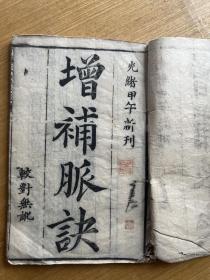 光緒甲午新刊
增補脈訣
較對無訛